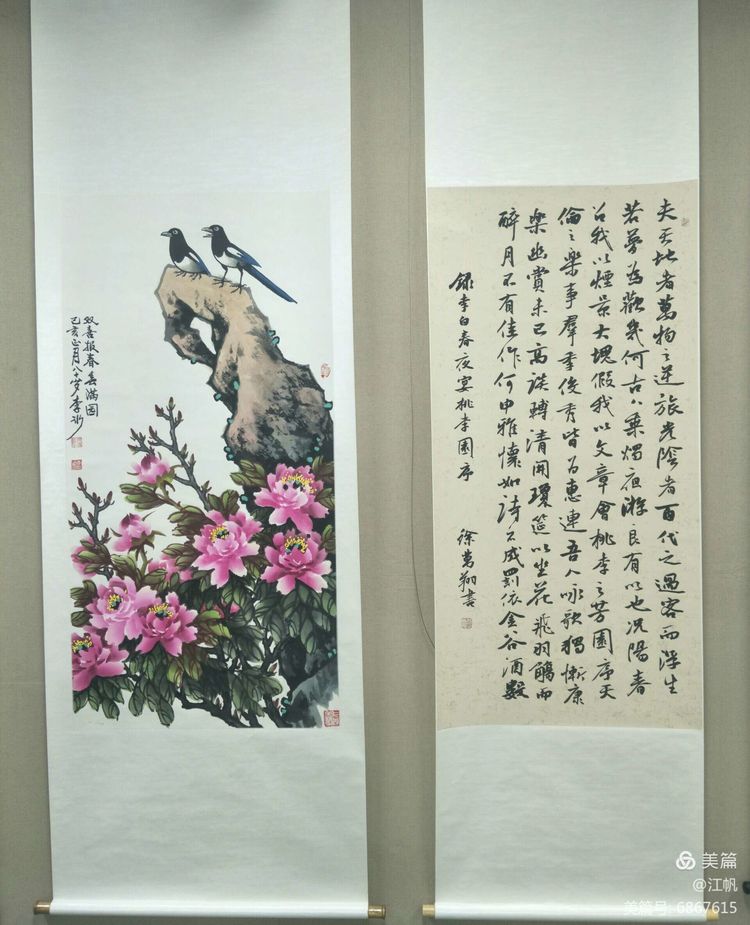 双喜报春春满园
己亥正月八十岁李
夫天地者萬物之逆旅光陰者百代之過客而浮生
若夢為歡幾何古人秉燭夜游良有以也况陽春
召我以煙景大塊假我以文章會桃李之芳園序天
倫之樂事羣季俊秀皆為惠連吾人咏歌獨慚康
樂幽賞未已高談轉清開瓊筵以坐花飛羽觴而
醉月不有佳作何申雅懷如詩不成罰依金谷酒數
錄李白春夜宴桃李園序
徐萬翔書
美篇
@江帆
美篇号: 6867615